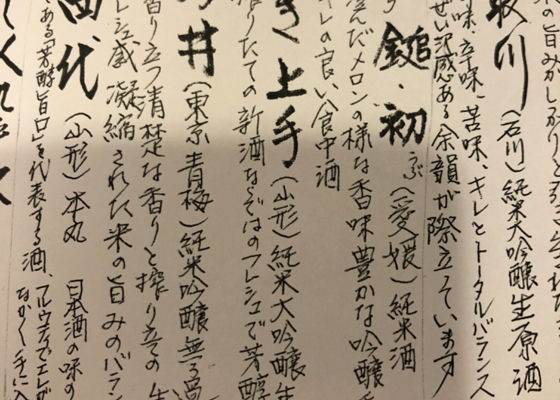 の旨みがしっかりと
川（石川）純米大吟醸生原酒
味、辛味、苦味、キレとトータルバランス
感ある余韻が際立っています
鎚・初（愛媛）純米酒
うぶ
んだメロンの様な香味豊かな吟醸
キレの良い食中酒
き上手（山形）純米大吟醸生
りたての新酒ならではのフレシュで芳醇
井（東京青梅）純米吟醸無
香り立つ清楚な香りと搾り立ての生
レシュ感凝縮された米の旨みのバラン
田代（山形）本丸 日本酒の味の
ある「芳醇旨口」を代表する酒、フルウティでエレガ
なかく手に入